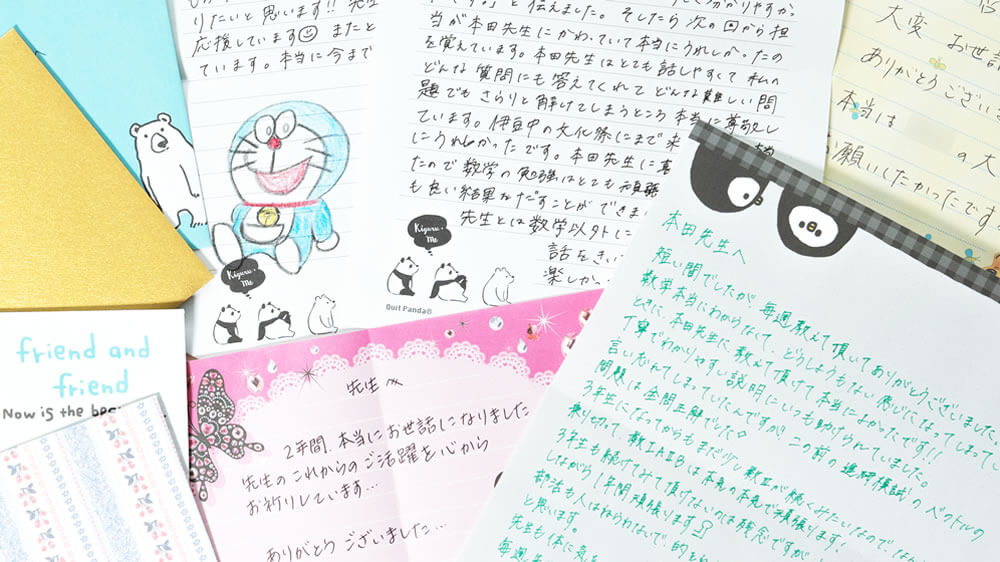 りたいと思います!! 先生
応援しています☺ またと
ています。本当に今まで
Kiguru.
Me
」と伝えました。そしたら次の回から担
当が本田先生にかわっていて本当にうれしかったの
を覚えています。本田先生はとても話しやすくて私の
どんな質問にも答えてくれてどんな難しい問
題でもさらりと解けてしまうところ本当に尊敬し
ています。伊豆中の文化祭にまで来
にうれしかったです。本田先生に
たので数学の勉強はとても頑張
も良い結果をだすことができま
先生とは数学以外に
話をき
楽しかっ
Kiguru.
Me
Quit Panda®
大変 お世話
ありがとうござい
本当は の大
願いしたかったです
friend and
friend
Now is the bes
先生へ
2年間、本当にお世話になりました
先生のこれからのご活躍を心から
お祈りしています…
ありがとうございました…
本田先生へ
短い間でしたが、毎週教えて頂いてありがとうございました
数学本当にわからなくて、どうしようもない感じになってしまって
ときに、本田先生に教えて頂けて本当によかったです!!
丁寧でわかりやすい説明にいつも助けられていました。
言い忘れてしまっていたんですが、この前の進研模試のベクトルの
問題は全問正解でした
3年生になってからもまだ少し数Ⅲが続くみたいなので、なん
乗り切って、数ⅠAⅡBは本気の本気で頑張ります!
3年生も続けてみて頂けないのは残念ですが
しながら1年間頑張ります
部活も人はねらわないで、的を
と思います。
先生も体に気を
毎週